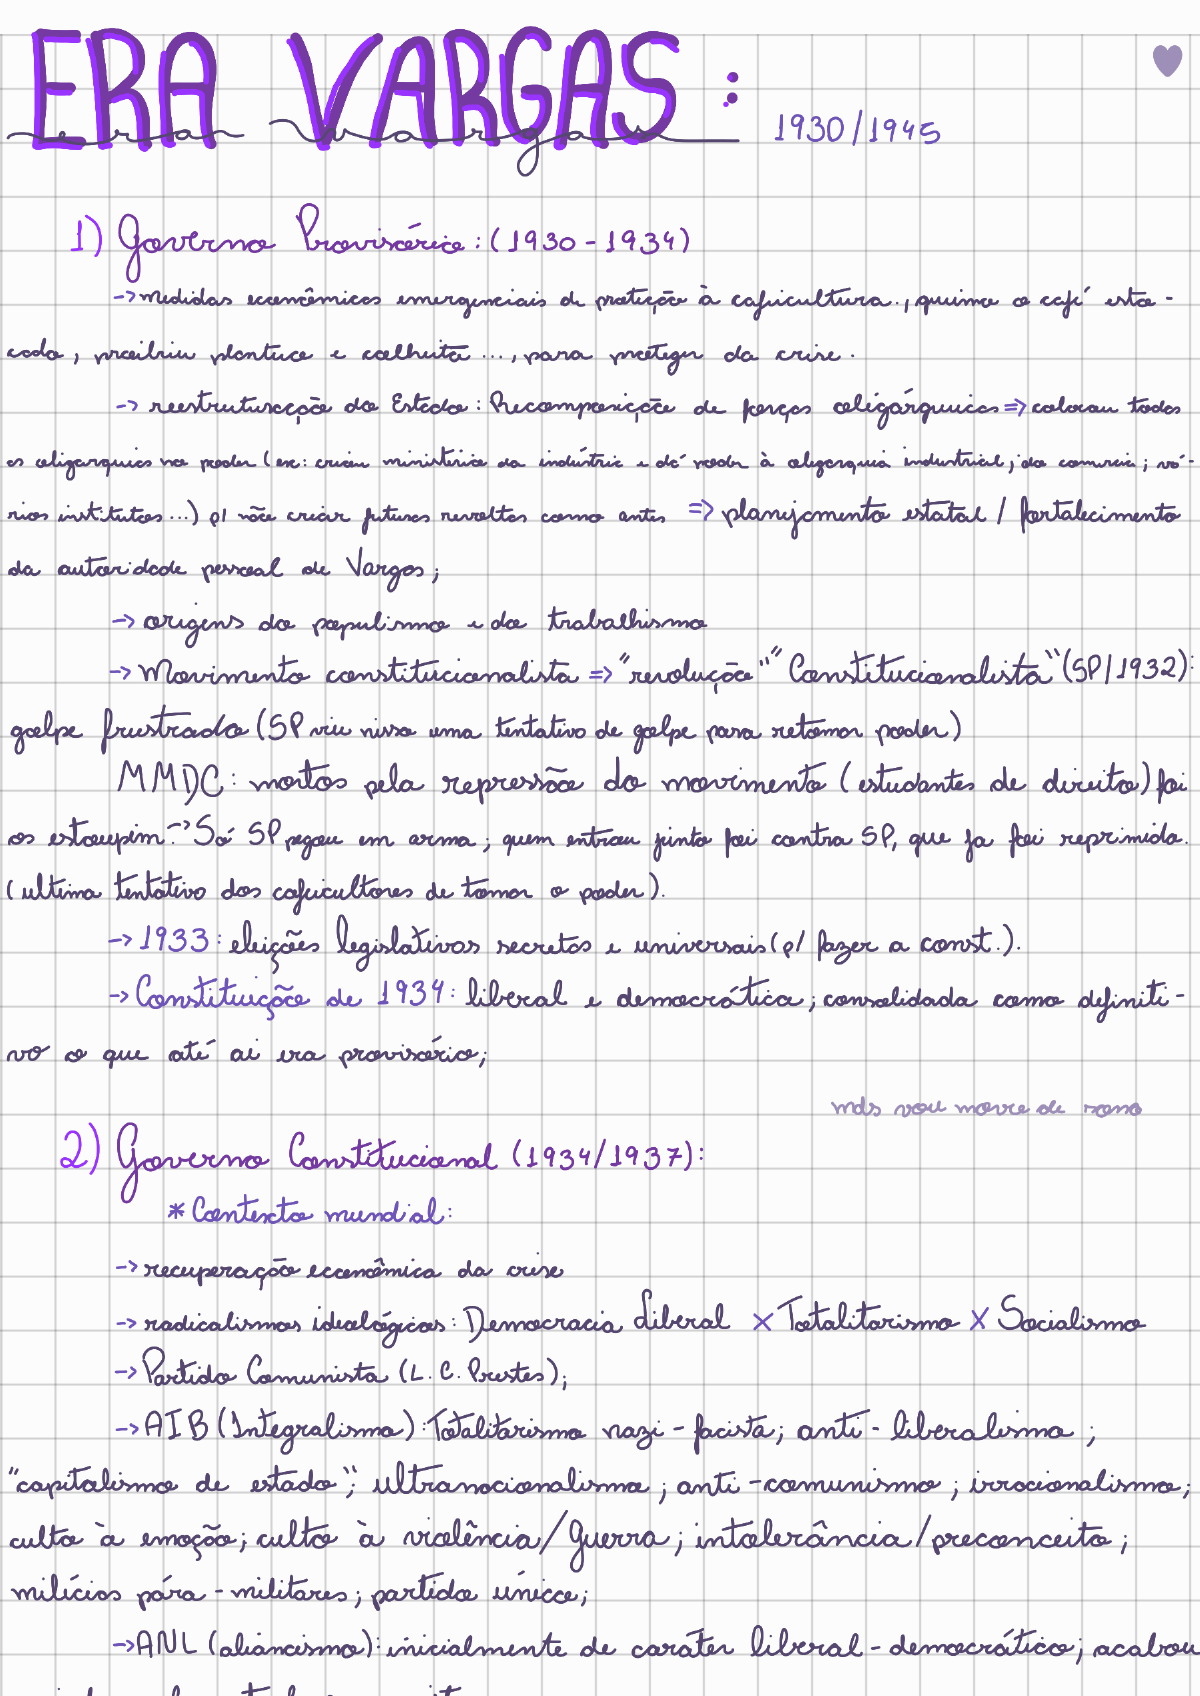 ERA VARGAS :
era vargas 1930/1945
1) Governo Provisório: (1930-1934)
-> medidas econômicas emergenciais de proteição à cafeicultura., queima o café esto-
cado, proibiu plantio e colheita ..., para proteger da crise.
-> reestruturação do Estado: Recomposição de forças oligárquicas => colocou todas
as oligarquias no poder (ex: criou ministério da indústria e dá poder à oligarquia industrial, do comércio; vá-
rios institutos ...) p/ não criar futuras revoltas como antes => planejamento estatal / fortalecimento
da autoridade pessoal de Vargas;
-> origens do populismo e do trabalhismo
-> Movimento constitucionalista => "revolução" "Constitucionalista" (SP/1932):
golpe frustrado (SP viu nisso uma tentativa de golpe para retomar poder)
MMDC: mortos pela repressão do movimento (estudantes de direito) foi
os estoupim. -> Só SP pegou em arma; quem entrou junto foi contra SP, que ja foi reprimida.
(ultima tentativa dos cafeicultores de tomar o poder).
-> 1933: eleições legislativas secretas e universais (p/ fazer a const.).
-> Constituição de 1934: liberal e democrática; consolidada como definiti-
vo o que até ai era provisório;
mds vou morre de sono
2) Governo Constitucional (1934/1937):
* Contexto mundial:
-> recuperação econômica da crise
-> radicalismos ideológicos: Democracia Liberal X Totalitarismo X Socialismo
-> Partido Comunista (L. C. Prestes);
-> AIB (Integralismo): Totalitarismo nazi-facista; anti-liberalismo;
"capitalismo de estado"; ultranacionalismo; anti-comunismo; irracionalismo;
culto à emoção; culto à violência/guerra; intolerância/preconceito;
milícias pára-militares; partido único;
-> ANL (aliancismo): inicialmente de caráter liberal-democrático; acabou